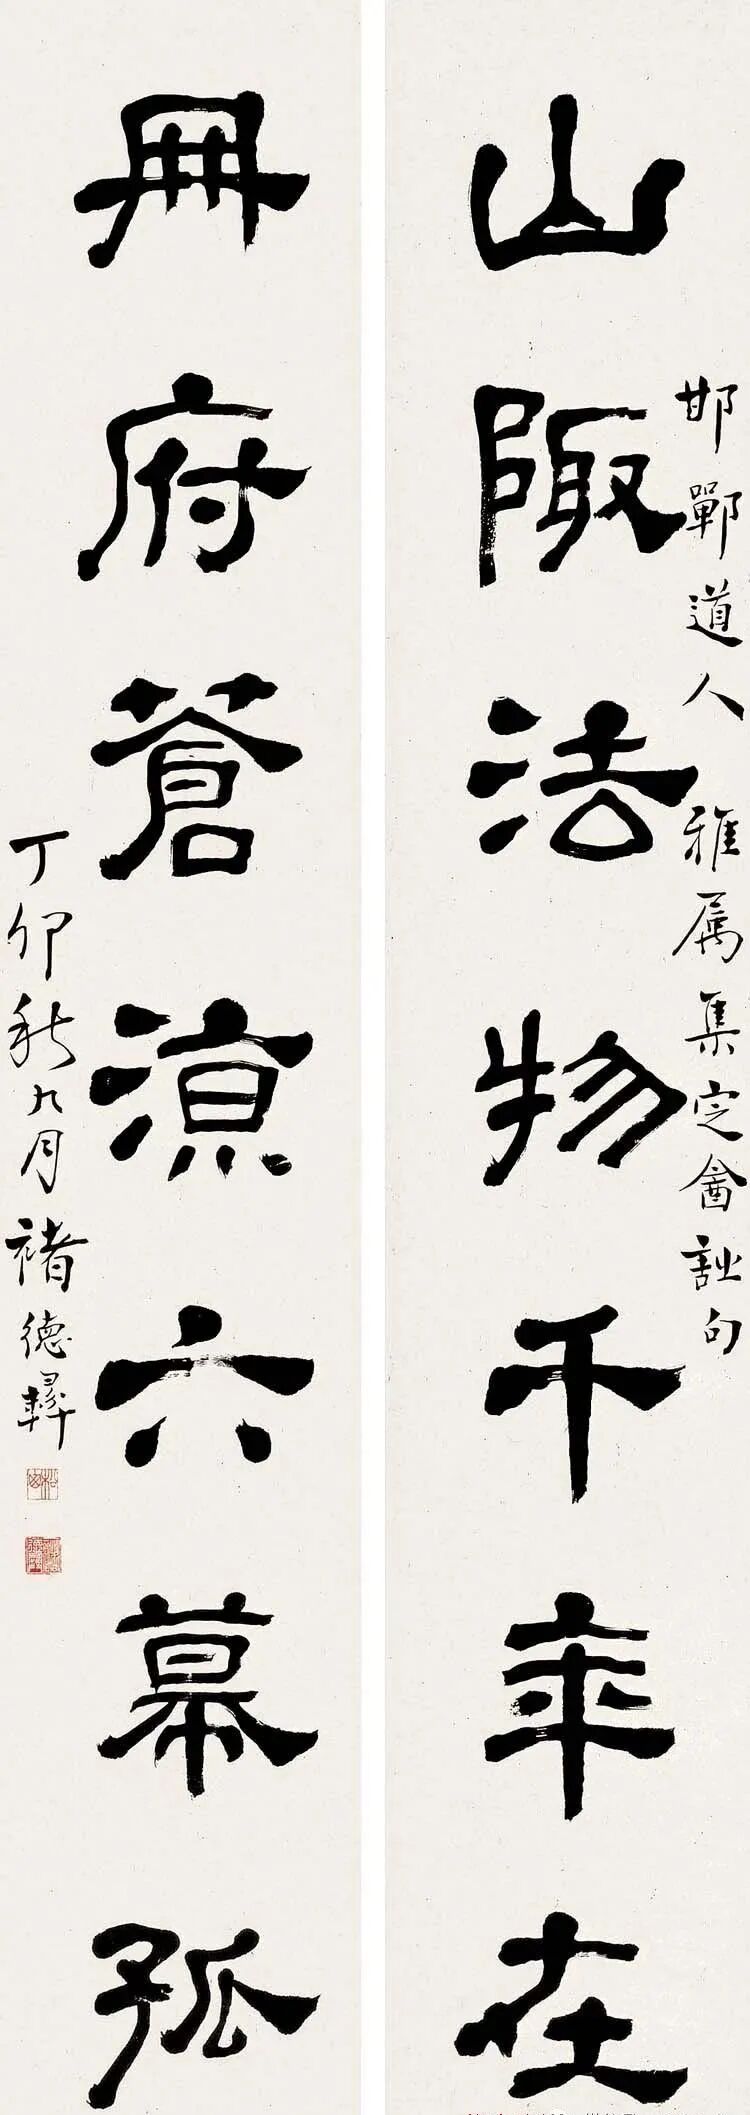 山陬法物千年在
邯鄲道人 雅属集定盦詩句
冊府蒼涼六幕孤
丁卯秋九月褚德彝
松窗